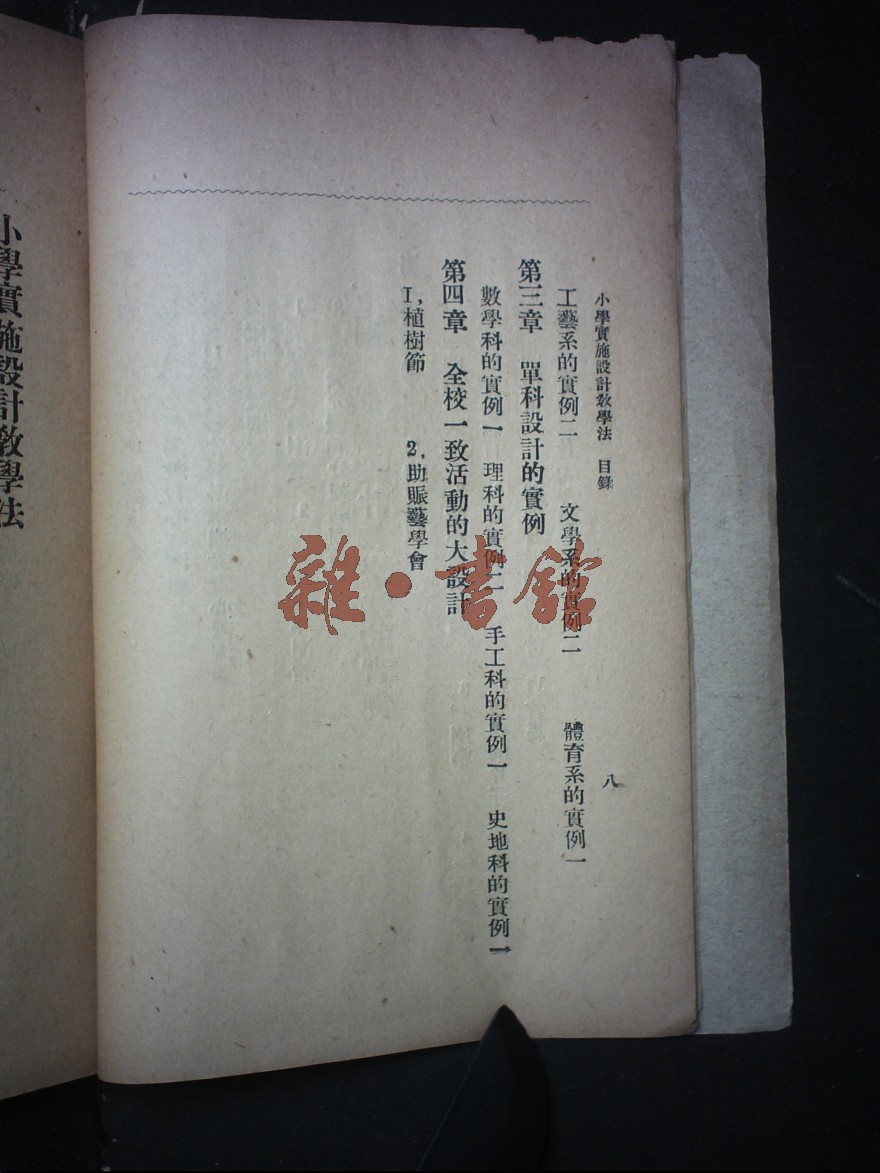 小學實施設計教學法　目錄　八
工藝系的實例二　文學系的實例二　體育系的實例一
第三章　單科設計的實例
數學科的實例一　理科的實例二　手工科的實例一　史地科的實例一
第四章　全校一致活動的大設計
1,植樹節　2,助賑藝學會
小學實施設計教學法
雜·書館